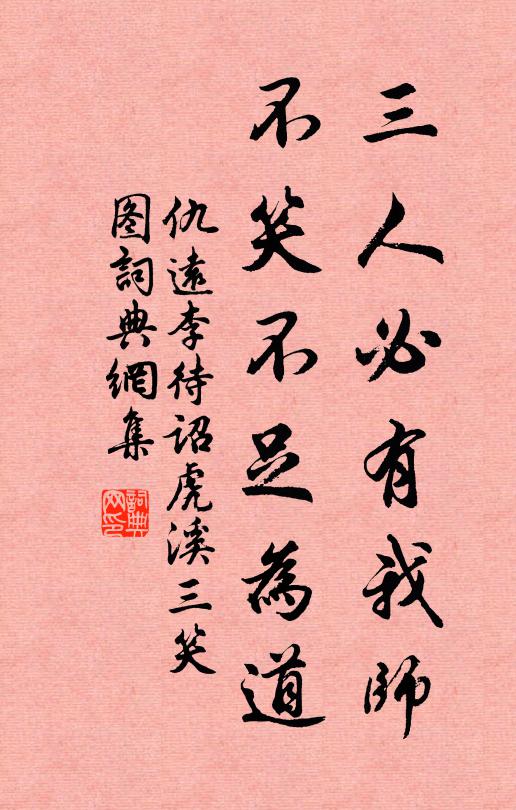 三人必有我師
不笑不足為道
仇遠李待詔虎溪三笑
图詞典網集
詞典網印